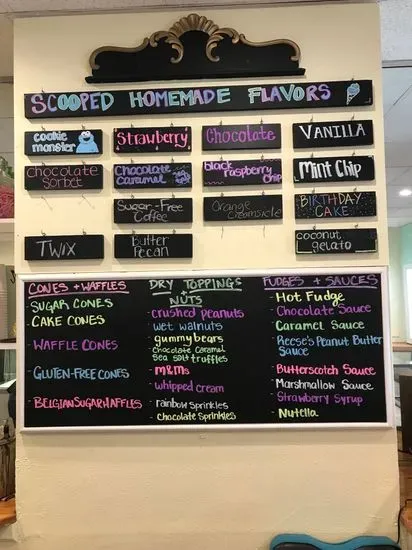 SCOOPED HOMEMADE FLAVORS
cookie monster
Strawberry
Chocolate
VANILLA
CHOCOLATE SORBET
CHOCOLATE CARAMEL
black raspberry chip
Mint Chip
Sugar-Free Coffee
Orange Creamsicle
BIRTHDAY CAKE
TWIX
Butter Pecan
coconut gelato
CONES + WAFFLES
SUGAR CONES
CAKE CONES
WAFFLE CONES
GLUTEN-FREE CONES
BELGIAN SUGAR WAFFLES
DRY TOPPINGS
NUTS
crushed peanuts
wet walnuts
gummybears
Chocolate Caramel
Sea Salt truffles
M&Ms
whipped cream
rainbow Sprinkles
Chocolate Sprinkles
FUDGES + SAUCES
Hot Fudge
Chocolate Sauce
Caramel Sauce
Reese's Peanut Butter
Sauce
Butterscotch Sauce
Marshmallow Sauce
Strawberry Syrup
Nutella